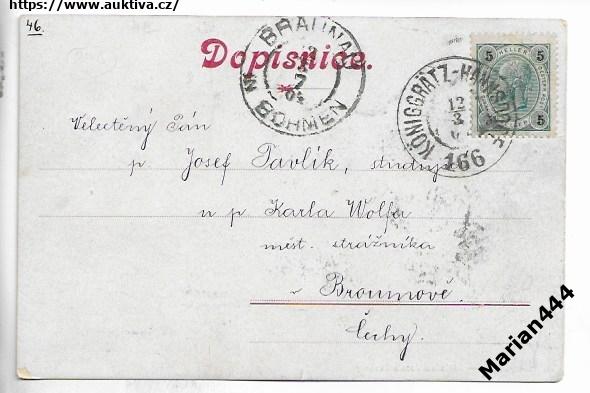 https://www.auktiva.cz/
46.
Dopisnice.
BRAUNAU
BÖHMEN
5 HELLER 5
5 5
KÖNIGGRÄTZ-
12
3
166
Velectěný Pán
p. Josef Pavlík, studující
u p. Karla Wolfa
měst. strážníka
v Broumově.
Čechy.
Marian444